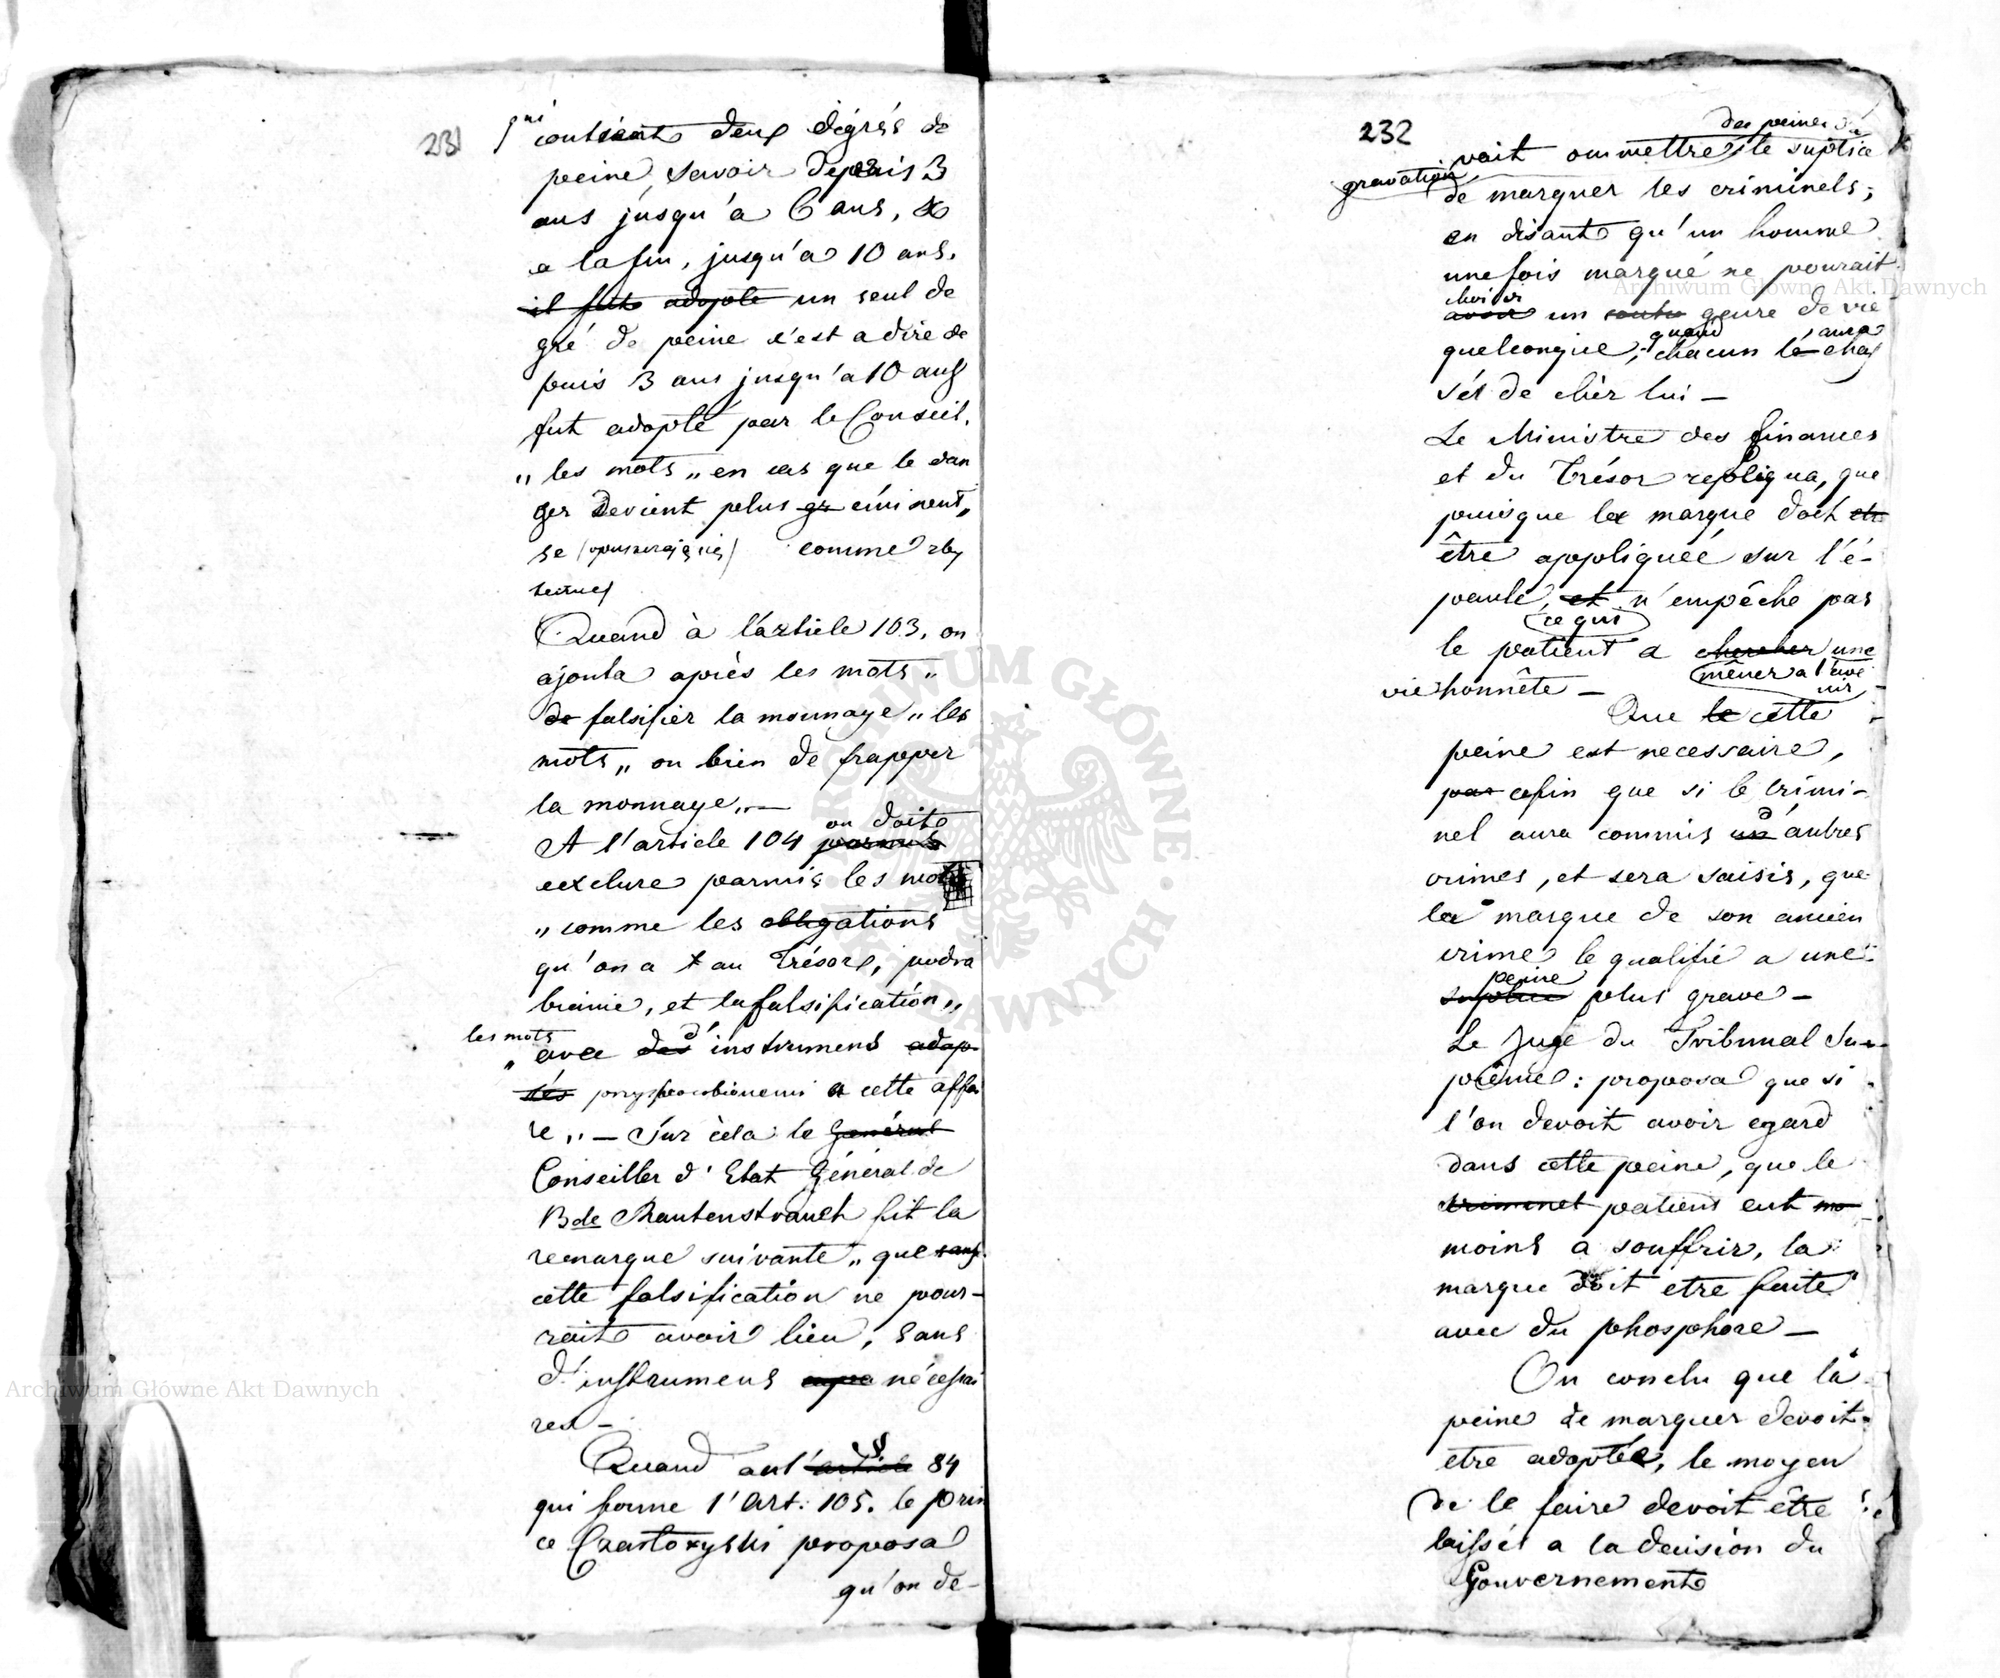 231
qui
contient deux dégrés de
peine, savoir depuis 3
ans jusqu'a 6 ans, &
a la fin, jusqu'a 10 ans.
il fut adopté un seul de
gré de peine c'est a dire de
puis 3 ans jusqu'a 10 ans
fut adopté par le Conseil.
„ les mots „ en cas que le dan
ger devient plus gr eminent„
se comme
Quand à l'article 103, on
ajouta après les mots„
de falsifier la monnaye „ les
mots„ ou bien de frapper
la monnaye„—
on doit
A l'article 104 parmis
exclure parmis les mots
„ comme les obligations
qu'on a au Trésor, podra
bianie, et la falsification„
les mots
„ avec des d'instrumens adap
tés a cette affai
re„ — Sur cèla le Général
Conseiller d'Etat Général de
Bde Rautenstrauch fit la
remarque suivante „ que sans
cette falsification ne pour-
rait avoir lieu, sans
d'instrumens néceſsai
res —
§
Quand au l'article 84
qui forme l'Art: 105. le prin
ce Czartoryski proposa
qu'on de-
232
des peines
vait ommettre le suplice
gravation
de marquer les criminels;
en disant qu'un homme
une fois marqué ne pourait
choisir
avoir un genre de vie
quand aura
quelconque, chacun le chaſ
sés de chèr lui —
Le Ministre des finances
et du Trésor repliqua, que
puisque la marque doit etr
être appliquéé sur l'é-
paule, et n'empêche pas
ce qui
le patient a chercher une
mêner a l'ave
nir
vie honnête —
Que le cette
peine est necessaire,
par afin que si le crimi-
nel aura commis un d'autres
crimes, et sera saisis, que
la marque de son ancien
crime le qualifie a une
peine
suplice plus grave —
Le Juge du Tribunal Su-
prême: proposa que si
l'on devoit avoir egard
dans cette peine, que le
criminel patient eut mo
moins a souffrir, la
marque doit etre faite
avec du phosphore —
On conclu que la
peine de marquer devoit
etre adoptée, le moyen
de le faire devoit être
laiſsés a la decision du
Gouvernement
Archiwum Główne Akt Dawnych
Archiwum Główne Akt Dawnych
ARCHIWUM GŁÓWNE AKT DAWNYCH